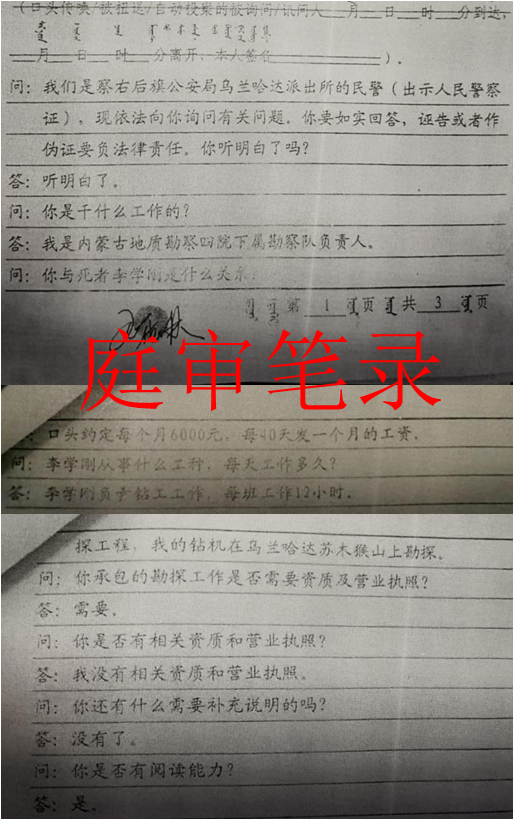 （口头传唤/被扭送/自动投案的被询问/讯问人___月___日___时___分到达，
___月___日___时___分离开，本人签名___）．
问：我们是察右后旗公安局乌兰哈达派出所的民警（出示人民警察
证），现依法向你询问有关问题。你要如实回答，诬告或者作
伪证要负法律责任。你听明白了吗？
答：听明白了。
问：你是干什么工作的？
答：我是内蒙古地质勘察四院下属勘察队负责人。
问：你与死者李学刚是什么关系：
第 1 页 共 3 页
庭审笔录
：口头约定每个月6000元，每40天发一个月的工资。
问：李学刚从事什么工种，每天工作多久？
答：李学刚负责钻工工作，每班工作12小时。
探工程，我的钻机在乌兰哈达苏木猴山上勘探。
问：你承包的勘探工作是否需要资质及营业执照？
答：需要。
问：你是否有相关资质和营业执照？
答：我没有相关资质和营业执照。
问：你还有什么需要补充说明的吗？
答：没有了。
问：你是否有阅读能力？
答：是。